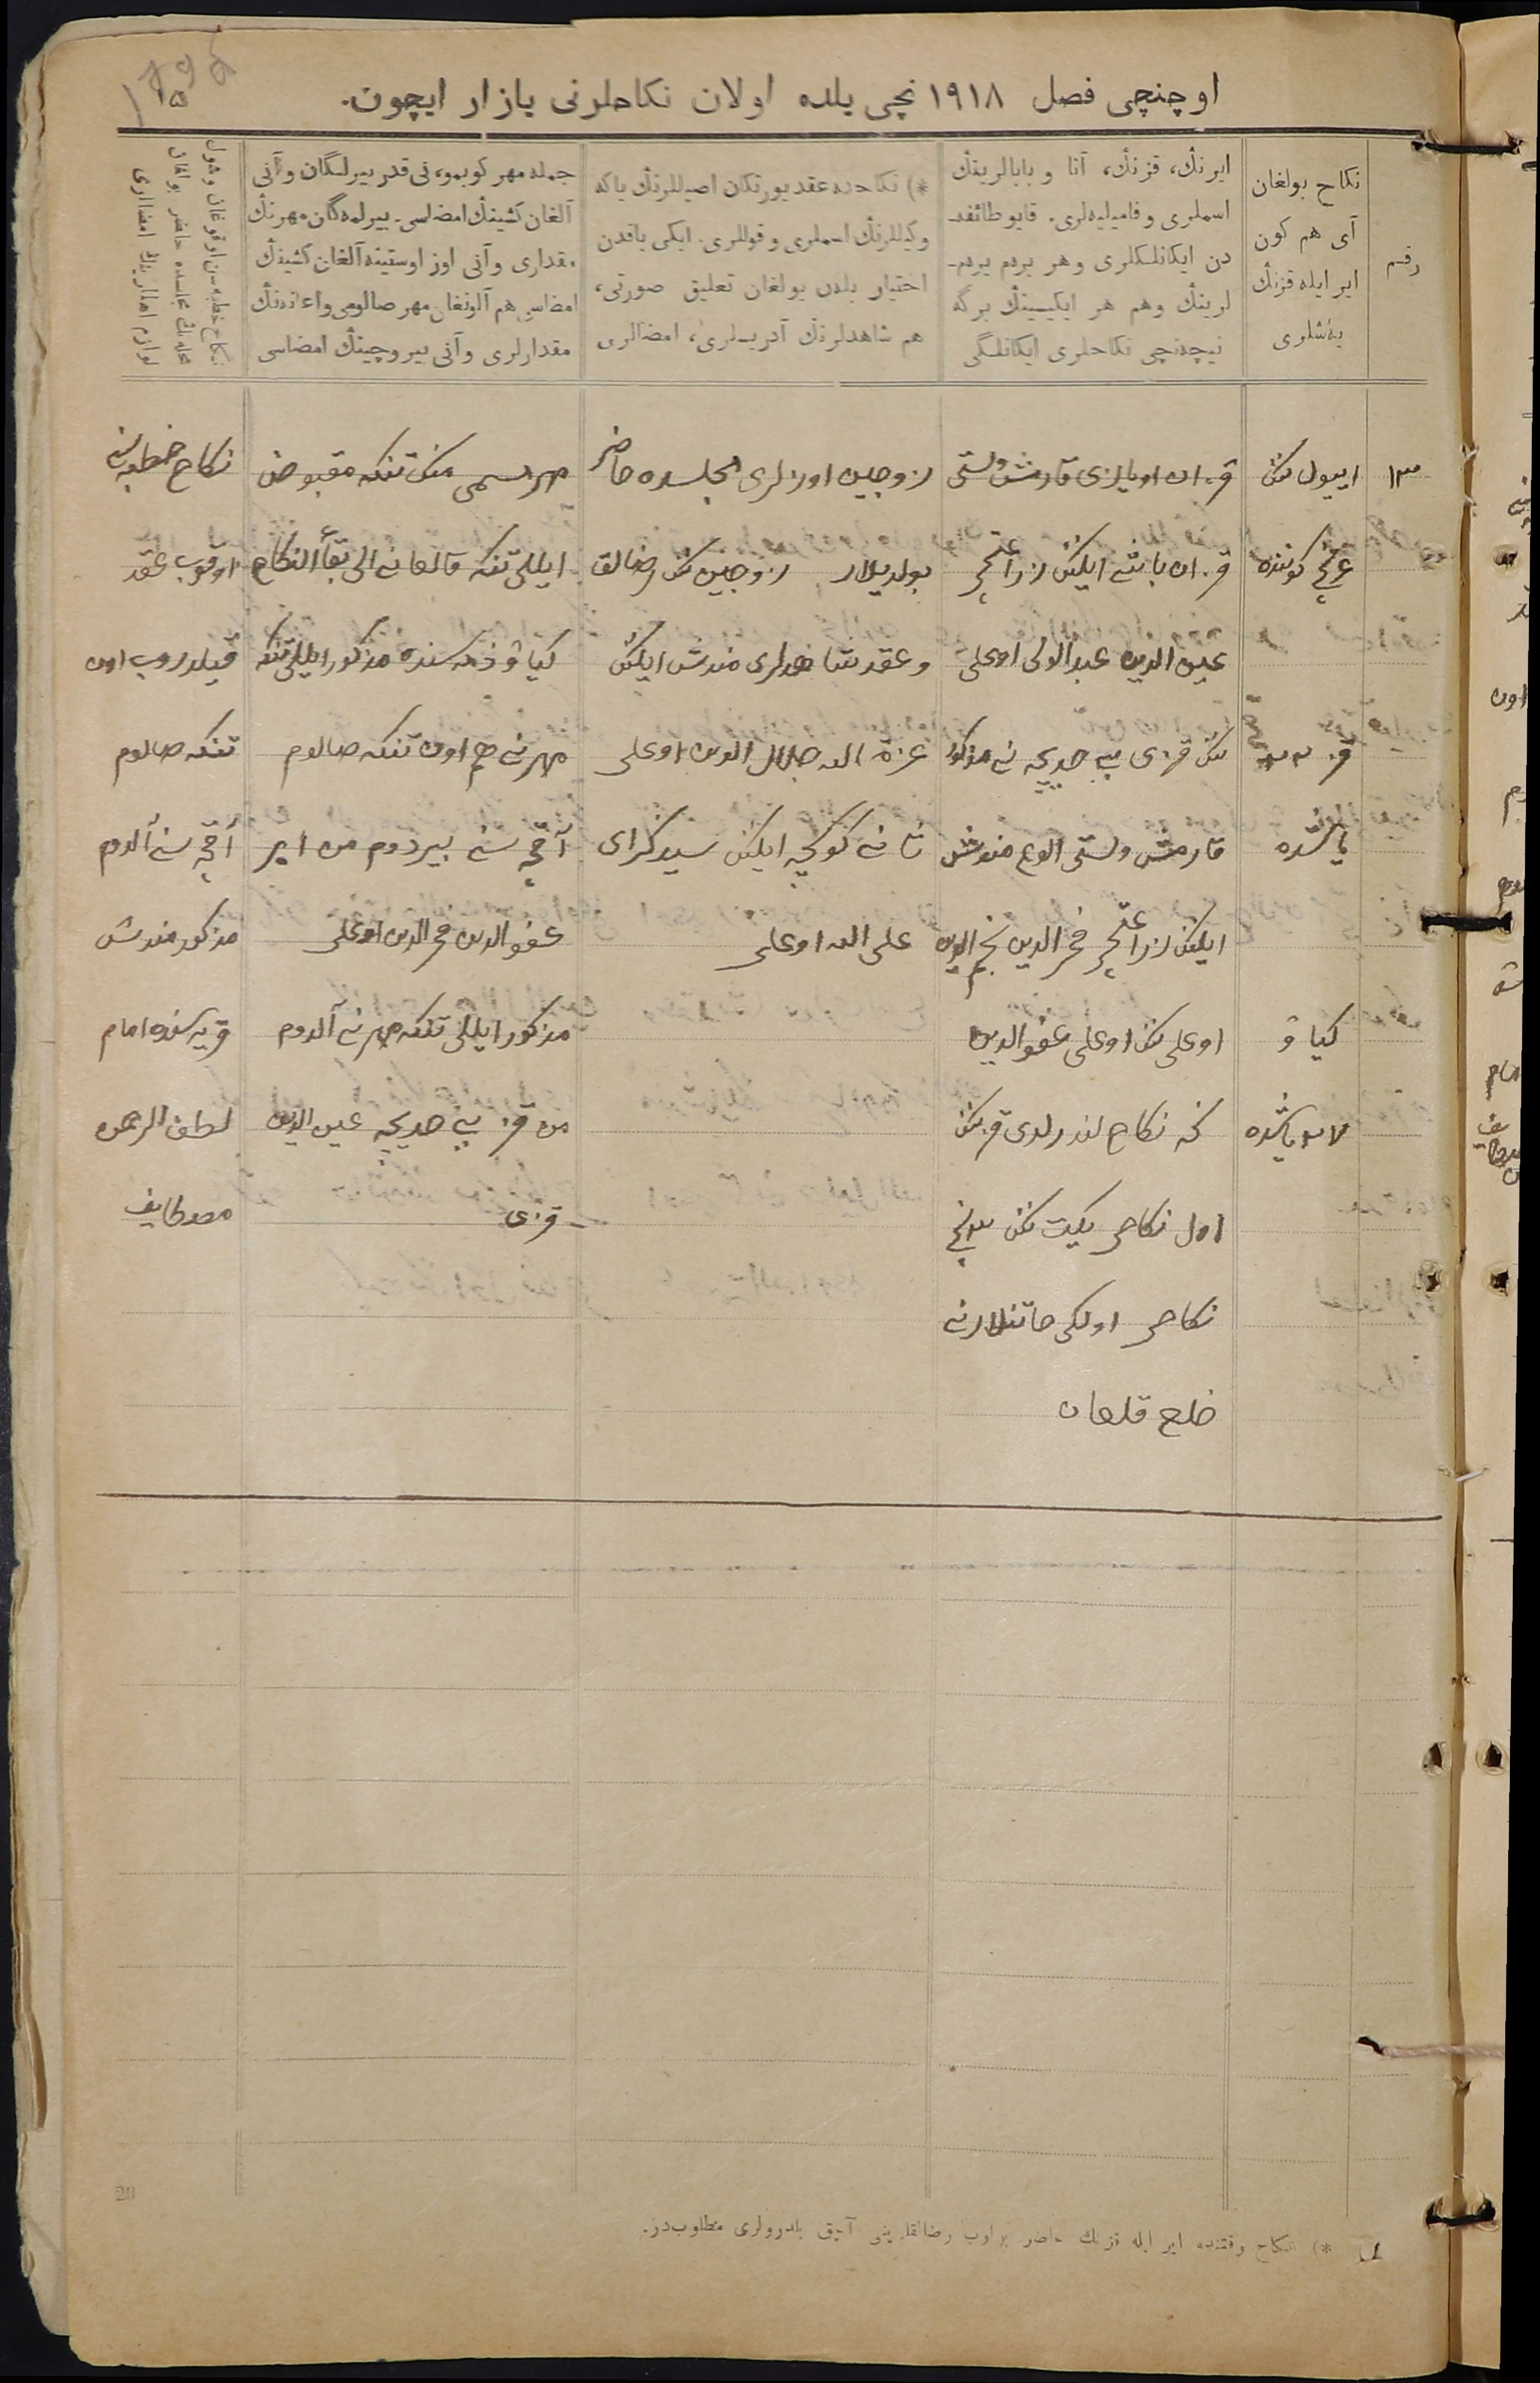 اوچنچی فصل ١٩١٨ نچی یلده اولان نکاحلرنی یازار ایچون.
رقم
نکاح بولغان
آی هم کون
ایر ایله قزنڭ
یەشلری
ایرنڭ، قزنڭ، آنا و بابالرینڭ
اسملری و فامیلیەلری. قایو طائفە‌ـ
دن ایکانلکلری و هر بردم بردم‌ـ
لرینڭ وهم هر ایکیسینڭ برگه
نیچەنچی نکاحلری ایکانلگی
*) نکاحده عقد یورتکان اصیللرنڭ یاکه
وکیللرنڭ اسملری و قوللری. ایکی یاقدن
اختیار بلەن بولغان تعلیق صورتی،
هم شاهدلرنڭ آدریسلری، امضالری
جمله مهر کوبمو، نی قدر بیرلگان و آنی
آلغان کشینڭ امضاسی. بیرلمەگان مهرنڭ
مقداری و آنی اوز اوستینه آلغان کشینڭ
امضاسی هم آلونغان مهر صالومی و اعانەنڭ
مقدارلری و آنی بیروچینڭ امضاسی
نکاح خطبەسن اوقوغان وشول
مجلسده حاضر بولغان
لوازم امضالری
١٣
اییول نڭ
کوننده
قز ٢٢
یاشده
کیاو
٢٧ یاشده
قزان اویازی قارمش ولستی
عین الدین عبدالولی اوغلی
نڭ قزی بی بی خدیجه نی مذکور
قارمش ولستی الوغ مندش
ایلنڭ فخر الدین نجم الدین
اوغلی نڭ اوغلی عفو الدین
گه نکاح لندرلدی قزنڭ
اول نکاحی یگت نڭ ٣نچی
نکاحی اولکی خاتنلارنه
خلع قلغان
زوجین اوزلری مجلسده حاضر
بولدیلار زوجین نڭ رضالق
و عقد شاهدلری مندش ایلنڭ
عزة الله جلال الدین اوغلی
علی الله اوغلی
مهر مسمی منڭ تنکه مقبوض
ایللی تنکه قالغانی الی بقاء النکاح
کیاو ذمەسنده مذکور ایللی تنکه
مهرنی هم اون تنکه صالوم
آقچەسنی بیردوم من ایر
عفو الدین فخر الدین اوغلی
مذکور ایللی تنکه مهرنی آلدوم
من قز بی بی خدیجه عین الدین
قزی
نکاح خطبەسنی
اوقوب عقد
قیلدروب اون
تنکه صالوم
آقچەسنی آلدوم
مذکور مندش
قریەسنده امام
لطف الرحمن
*) نکاح وقتنده ایر ایله قزنڭ حاضر بولوب رضالقلرینی آچق بلدرولری مطلوبدر.
20